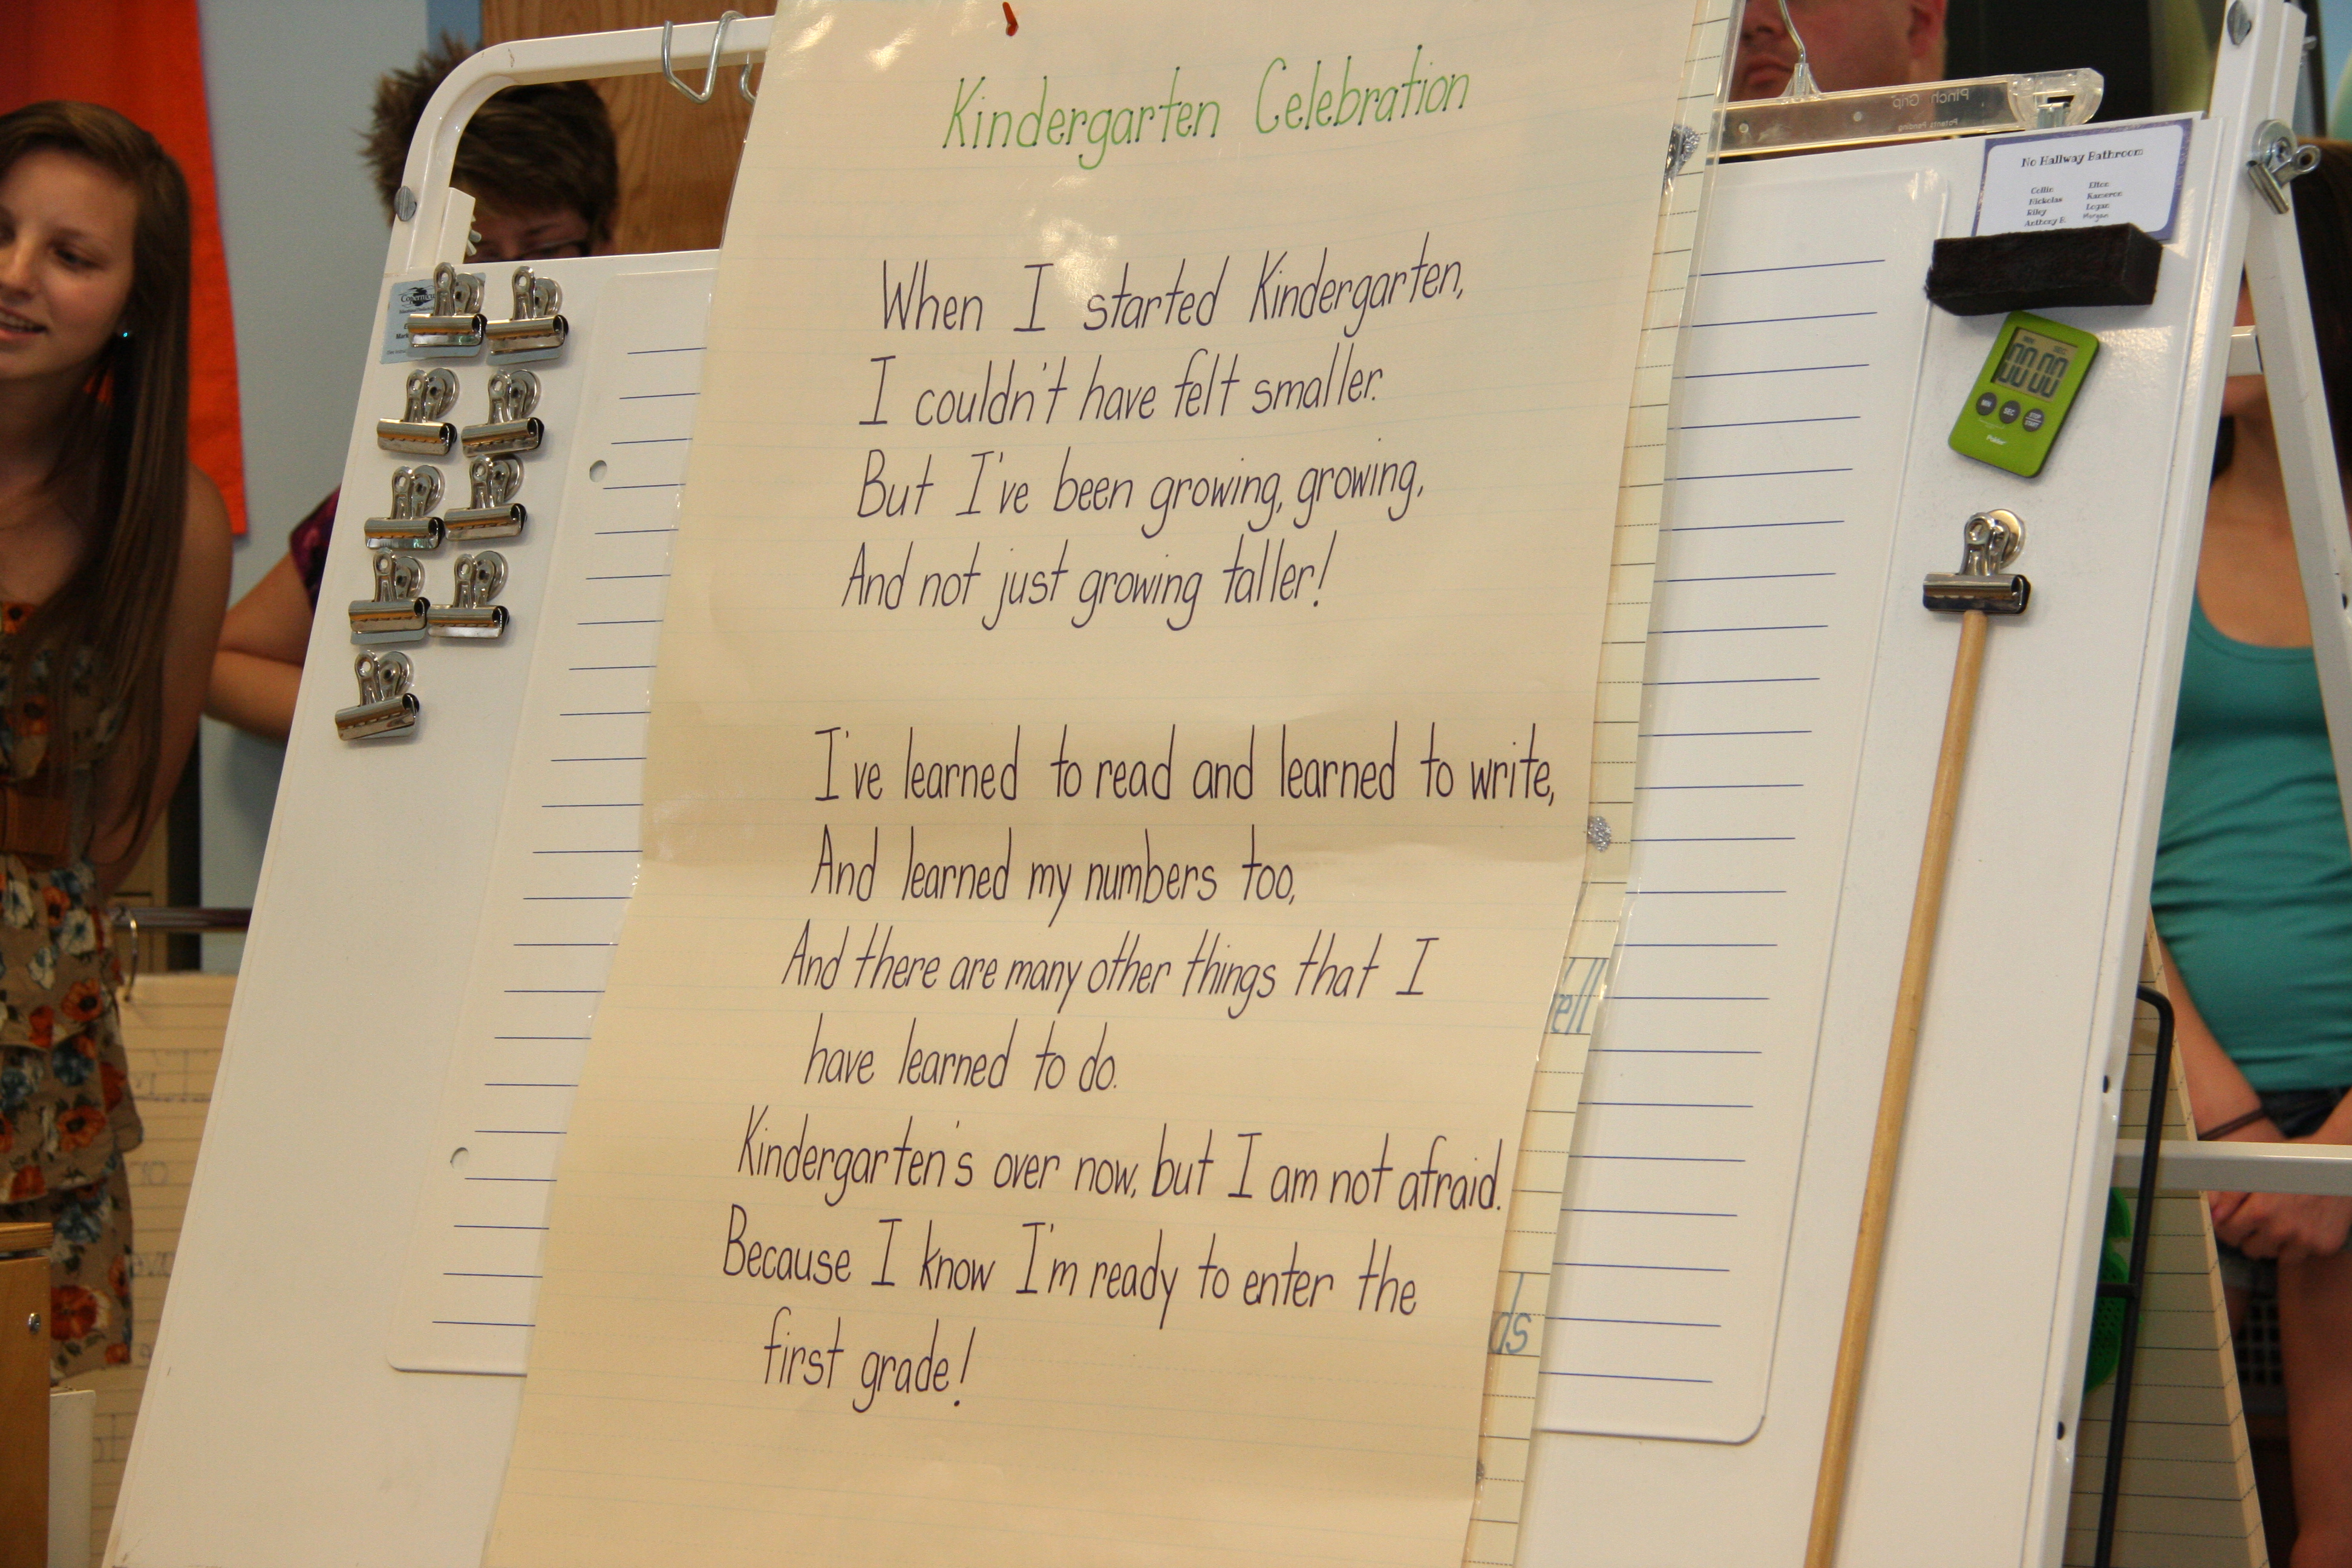 Kindergarten Celebration
When I started Kindergarten,
I couldn't have felt smaller.
But I've been growing, growing,
And not just growing taller!
I've learned to read and learned to write,
And learned my numbers too,
And there are many other things that I
have learned to do.
Kindergarten's over now, but I am not afraid.
Because I know I'm ready to enter the
first grade!
Pinch Grip
Patents Pending
No Hallway Bathroom
Collin Elton
Nickolas Kameron
Riley Logan
Anthony E. Morgan
00 00
MIN SEC STOP START
Polder
ell
ds